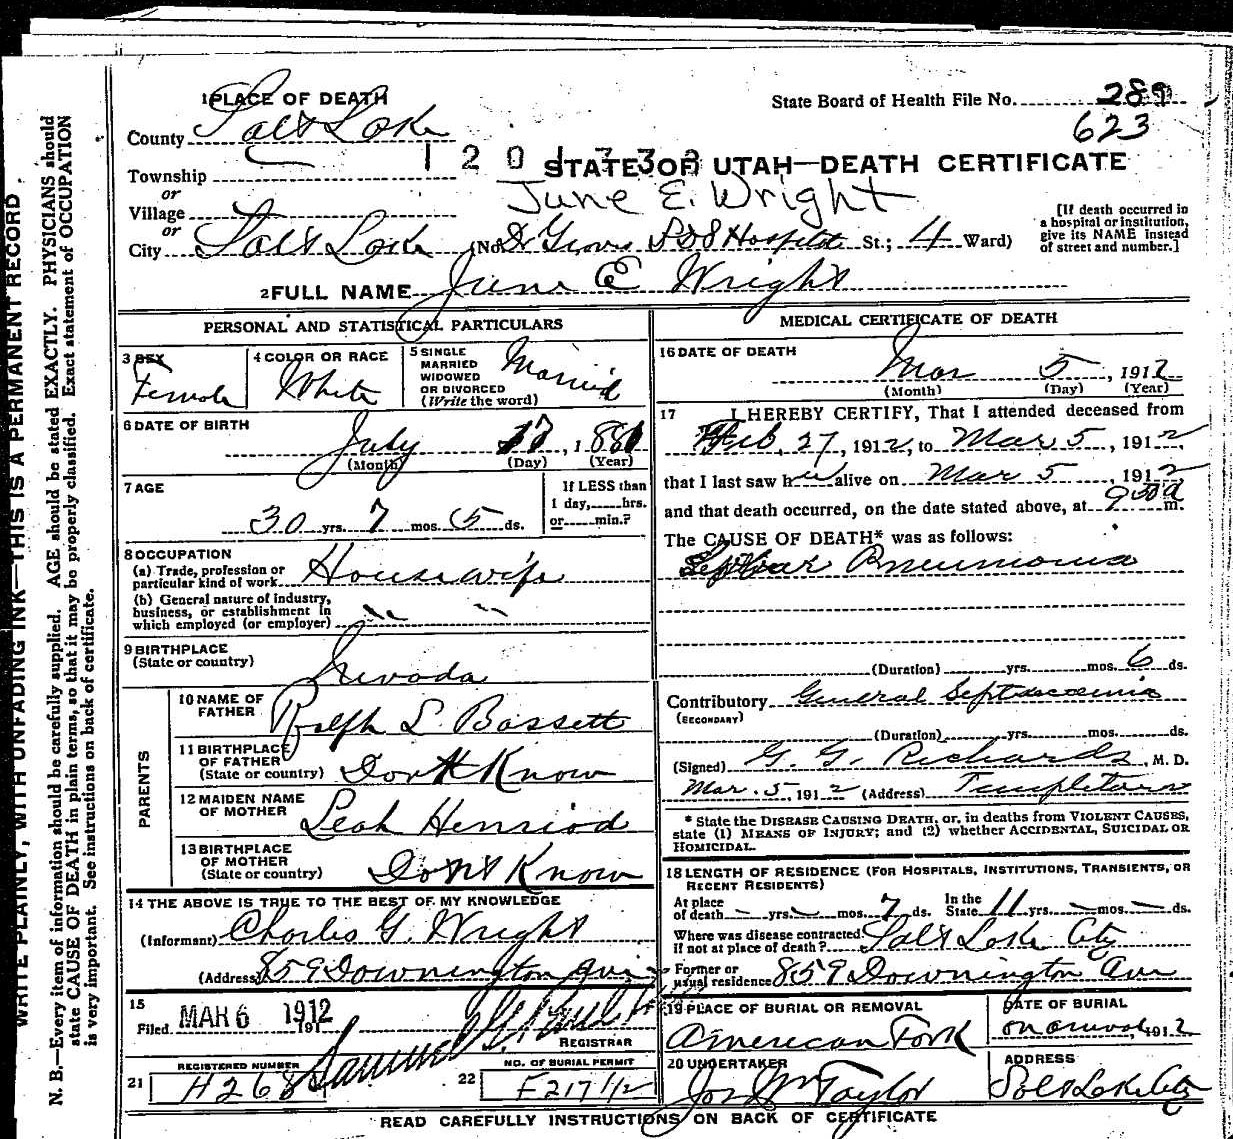 1 PLACE OF DEATH
State Board of Health File No. 289
623
County Salt Lake
1201733
STATE OF UTAH—DEATH CERTIFICATE
Township
or
June E. Wright
Village
or
City Salt Lake (No. St.; 4 Ward)
[If death occurred in
a hospital or institution,
give its NAME instead
of street and number.]
2 FULL NAME June E Wright
PERSONAL AND STATISTICAL PARTICULARS
3 SEX
Female
4 COLOR OR RACE
White
5 SINGLE
MARRIED
WIDOWED
OR DIVORCED
(Write the word)
Married
6 DATE OF BIRTH
July 17, 1881
(Month) (Day) (Year)
7 AGE
30 yrs. 7 mos. 5 ds.
If LESS than
1 day, hrs.
or min.?
8 OCCUPATION
(a) Trade, profession or
particular kind of work Housewife
(b) General nature of industry,
business, or establishment in
which employed (or employer) " "
9 BIRTHPLACE
(State or country)
Nevada
PARENTS
10 NAME OF
FATHER Ralph L. Bassett
11 BIRTHPLACE
OF FATHER
(State or country) Don't Know
12 MAIDEN NAME
OF MOTHER Leah Henriod
13 BIRTHPLACE
OF MOTHER
(State or country) Don't Know
14 THE ABOVE IS TRUE TO THE BEST OF MY KNOWLEDGE
(Informant) Charles G. Wright
(Address) 859 Downington Ave
15
Filed MAR 6 1912 191
REGISTRAR
REGISTERED NUMBER
21 H268
NO. OF BURIAL PERMIT
22 F217 1/12
MEDICAL CERTIFICATE OF DEATH
16 DATE OF DEATH
Mar 5, 1912
(Month) (Day) (Year)
17 I HEREBY CERTIFY, That I attended deceased from
Feb, 27, 1912, to Mar 5, 1912,
that I last saw her alive on Mar 5, 1912
and that death occurred, on the date stated above, at 9 30 a m.
The CAUSE OF DEATH* was as follows:
Pneumonia
(Duration) yrs. mos. 6 ds.
Contributory General Septicaemia
(SECONDARY)
(Duration) yrs. mos. ds.
(Signed) G. G. Richards, M. D.
Mar. 5, 1912 (Address) Templeton
* State the DISEASE CAUSING DEATH, or, in deaths from VIOLENT CAUSES,
state (1) MEANS OF INJURY; and (2) whether ACCIDENTAL, SUICIDAL OR
HOMICIDAL.
18 LENGTH OF RESIDENCE (FOR HOSPITALS, INSTITUTIONS, TRANSIENTS, OR
RECENT RESIDENTS)
At place
of death – yrs. – mos. 7 ds.
In the
State 11 yrs. – mos. – ds.
Where was disease contracted,
if not at place of death? Salt Lake City
Former or
usual residence 859 Downington Ave
19 PLACE OF BURIAL OR REMOVAL
American Fork
DATE OF BURIAL
on arrival, 1912
20 UNDERTAKER
Jos Wm Taylor
ADDRESS
Salt Lake City
READ CAREFULLY INSTRUCTIONS ON BACK OF CERTIFICATE
WRITE PLAINLY, WITH UNFADING INK—THIS IS A PERMANENT RECORD
N. B.—Every item of information should be carefully supplied. AGE should be stated EXACTLY. PHYSICIANS should
state CAUSE OF DEATH in plain terms, so that it may be properly classified. Exact statement of OCCUPATION
is very important. See instructions on back of certificate.